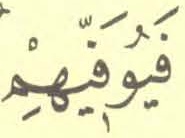 فَيُوَفِّيهِمْ